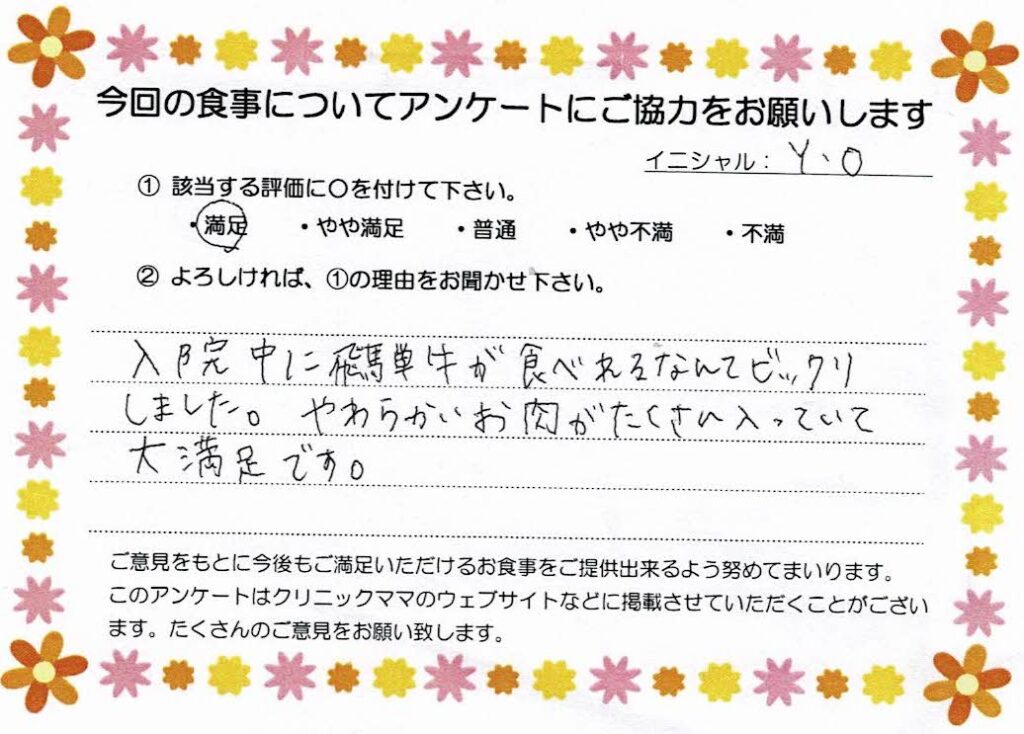 今回の食事についてアンケートにご協力をお願いします
イニシャル： Y・O
① 該当する評価に〇を付けて下さい。
・満足 ・やや満足 ・普通 ・やや不満 ・不満
② よろしければ、①の理由をお聞かせ下さい。
入院中に飛騨牛が食べれるなんてビックリ
しました。 やわらかいお肉がたくさん入っていて
大満足です。
ご意見をもとに今後もご満足いただけるお食事をご提供出来るよう努めてまいります。
このアンケートはクリニックママのウェブサイトなどに掲載させていただくことがござい
ます。たくさんのご意見をお願い致します。